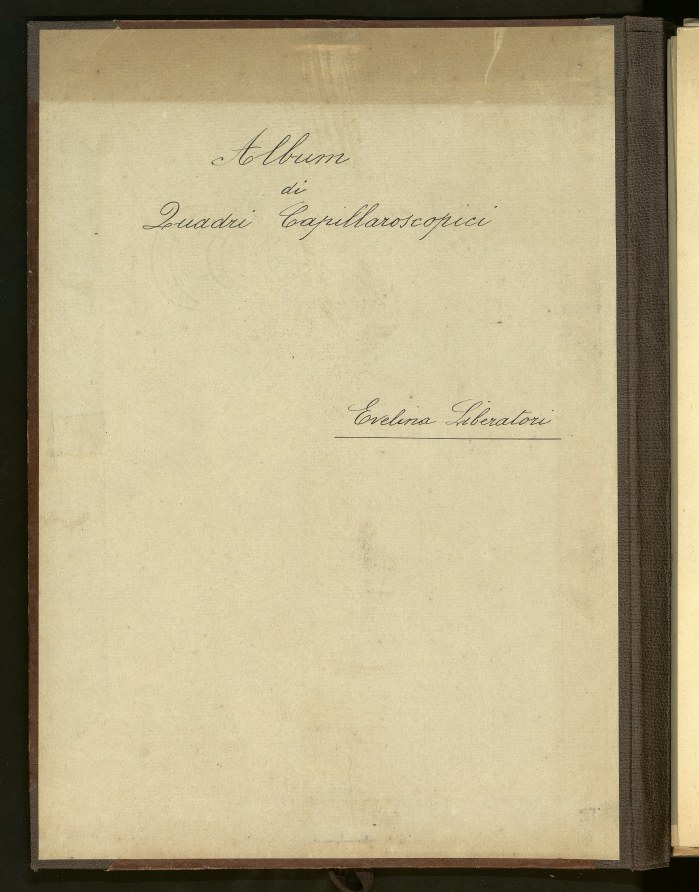 Album
di
Quadri Capillaroscopici
Evelina Liberatori